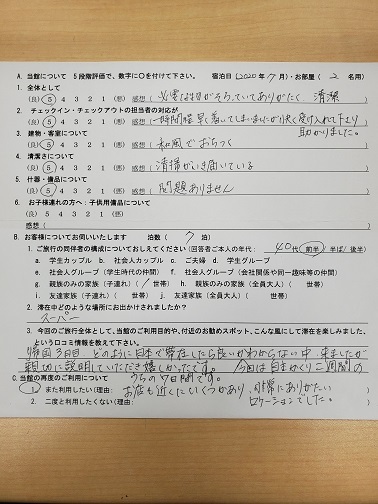 A. 当館について 5段階評価で、数字に○を付けて下さい。 宿泊日(2020年7月)・お部屋( 2 名用)
1. 全体として
(良) 5 4 3 2 1 (悪) 感想( 必要な物がそろっていてありがたく 清潔 )
2. チェックイン・チェックアウトの担当者の対応が
(良) 5 4 3 2 1 (悪) 感想( 一時間程早く着いてしまいましたが快く受け入れて下さり 助かりました。 )
3. 建物・客室について
(良) 5 4 3 2 1 (悪) 感想( 和風でおちつく )
4. 清潔さについて
(良) 5 4 3 2 1 (悪) 感想( 清掃がいき届いている )
5. 什器・備品について
(良) 5 4 3 2 1 (悪) 感想( 問題ありません )
6. お子様連れの方へ:子供用備品について
(良) 5 4 3 2 1 (悪)
感想( )
B. お客様についてお伺いいたします 泊数( 7 )泊
1. ご旅行の同伴者の構成についておしえてください(回答者ご本人の年代: 40代 前半/半ば/後半)
a. 学生カップル b. 社会人カップル c. ご夫婦 d. 学生グループ
e. 社会人グループ(学生時代の仲間) f. 社会人グループ(会社関係や同一趣味等の仲間)
g. 親族のみのご家族(子連れ)( / 世帯) h. 親族のみのご家族(全員大人)( 世帯)
i. 友達家族(子連れ)( 世帯) j. 友達家族(全員大人)( 世帯)
2. 滞在中どのような場所にお出かけされましたか?
スーパー
3. 今回のご旅行全体として、当館のご利用目的や、付近のお勧めスポット、こんな風にして滞在を楽しみました、
という口コミ情報を教えて下さい。
帰国3日目、どのように日本で滞在したら良いかわからない中、来ましたが
親切に説明していただき嬉しかったです。 今回は自主かくり2週間の
うちの7日間です。
C. 当館の再度のご利用について
1. また利用したい(理由: お店も近くにいくつかあり、非常にありがたい
ロケーションでした。
2. 二度と利用したくない(理由: